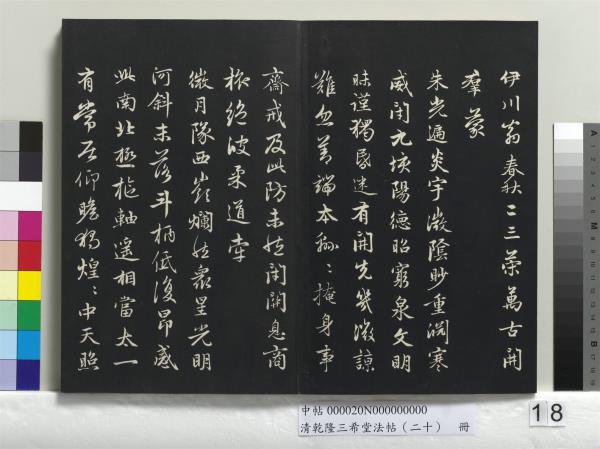 伊川翁春秋二三策萬古開
羣蒙
朱光遍炎宇微陰眇重淵寒
威閉九垓陽德昭窮泉文明
昧謹獨昏迷有開先幾微諒
難忽善端本綿〻掩身事
齋戒及此防未然閉關息商
旅絕彼柔道牽
微月隊西嶺爛然眾星光明
河斜未落斗柄低復昂感
此南北極樞軸遙相當太一
有常居仰瞻獨煌〻中天照
中帖 000020N000000000
清乾隆三希堂法帖（二十） 冊
18